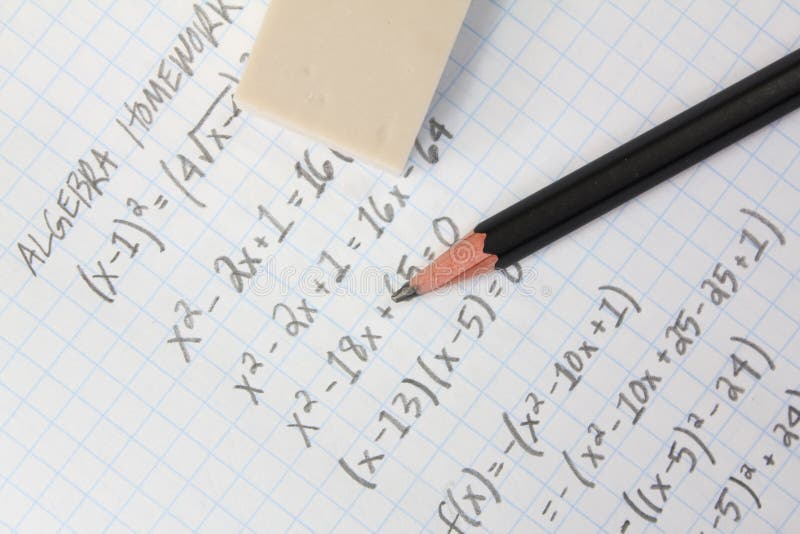 ALGEBRA HOMEWORK
(x-1)² = (4√x-
x² - 2x + 1 = 16(
x² - 2x + 1 = 16x - 64
x² - 18x + 65 = 0
(x-13)(x-5) = 0
f(x) = -(x² - 10x + 1)
= -(x² - 10x + 25 - 25 + 1)
-((x-5)² - 24)
-5)² + 24
dreamstime